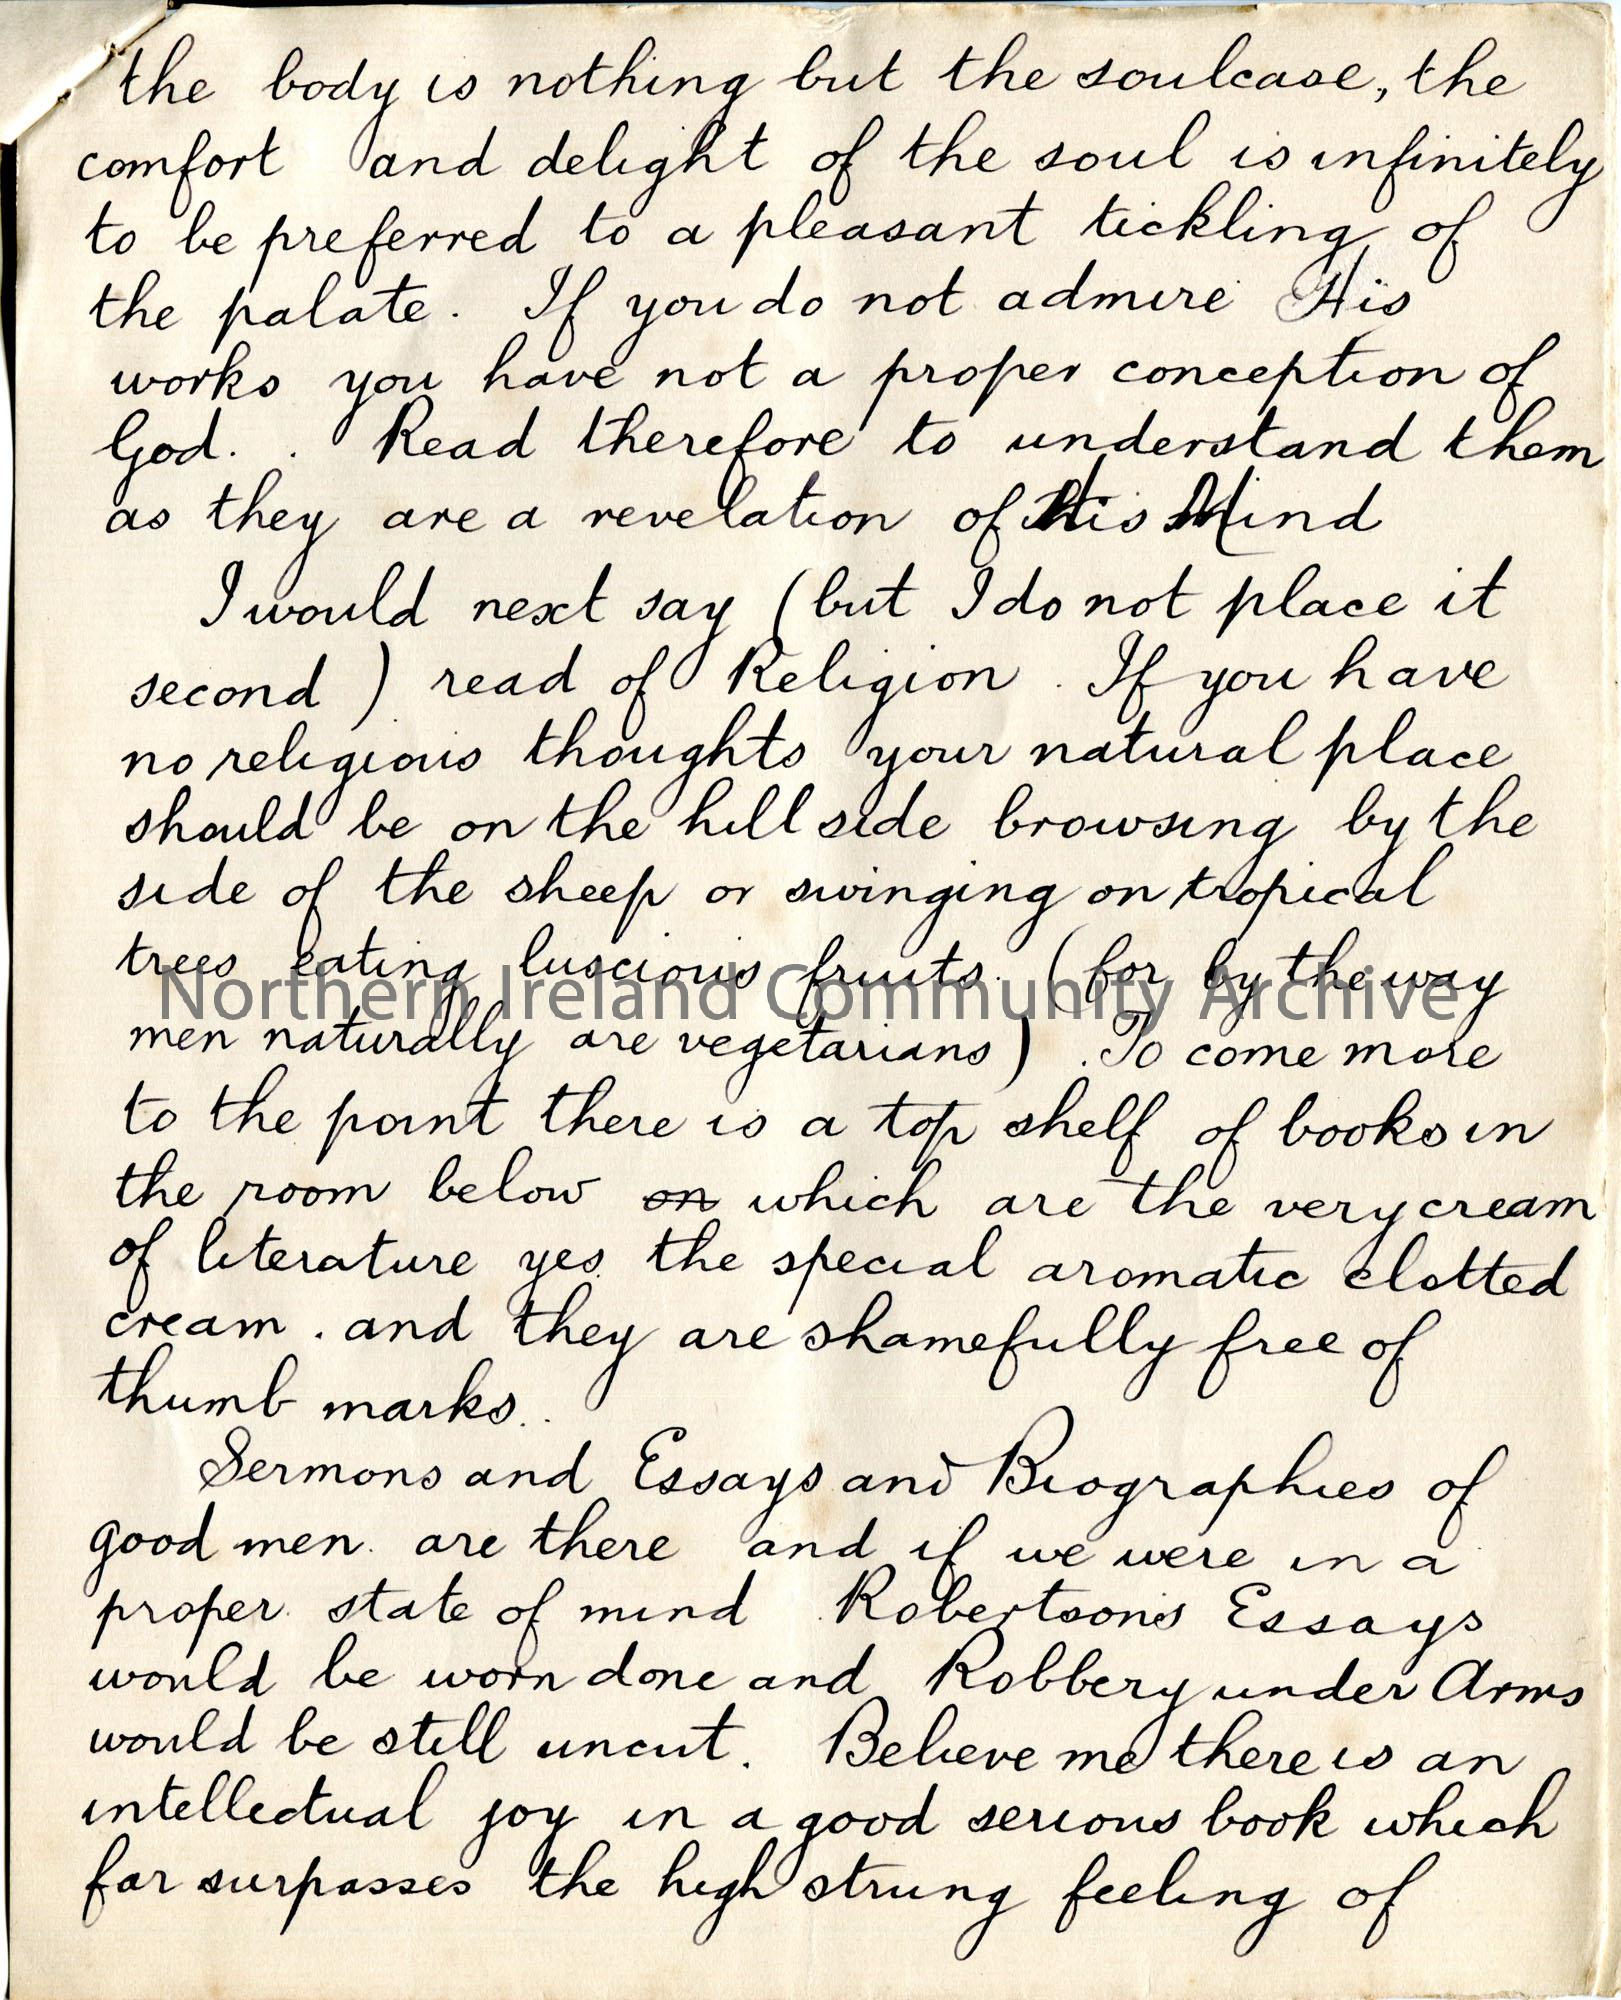 the body is nothing but the soulcase, the
comfort and delight of the soul is infinitely
to be preferred to a pleasant tickling of
the palate. If you do not admire His
works you have not a proper conception of
God. . Read therefore to understand them
as they are a revelation of His Mind
I would next say (but I do not place it
second) read of Religion. If you have
no religious thoughts your natural place
should be on the hill side browsing by the
side of the sheep or swinging on tropical
trees eating luscious fruits. (for by the way
Northern Ireland Community Archive
men naturally are vegetarians). To come more
to the point there is a top shelf of books in
the room below on which are the very cream
of literature yes the special aromatic clotted
cream. and they are shamefully free of
thumb marks..
Sermons and Essays and Biographies of
good men. are there and if we were in a
proper state of mind Robertson's Essays
would be worn done and Robbery under Arms
would be still uncut. Believe me there is an
intellectual joy in a good serious book which
far surpasses the high strung feeling of